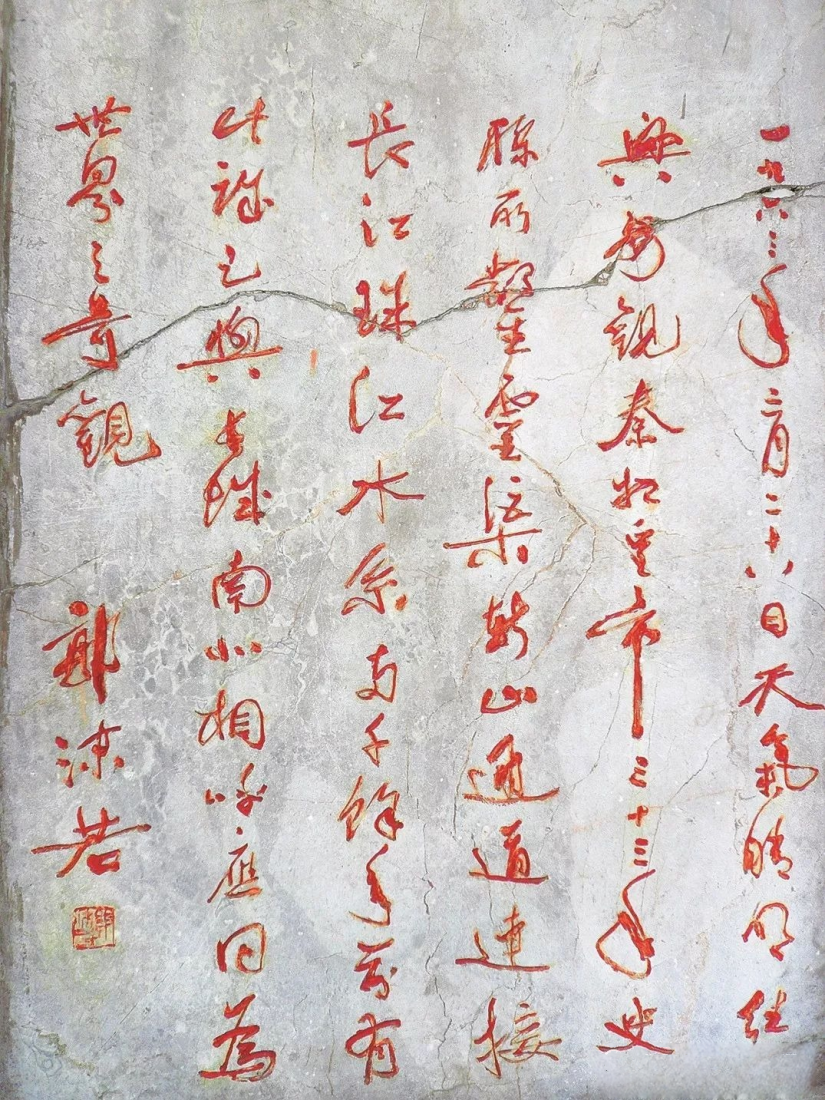 一九六三年三月二十八日天氣晴明往
興安观秦始皇帝三十三年史
祿所鑿靈渠斬山通道連接
長江珠江水系两千餘年前有
此誠足與長城南北相呼應同為
世界之奇觀 郭沫若